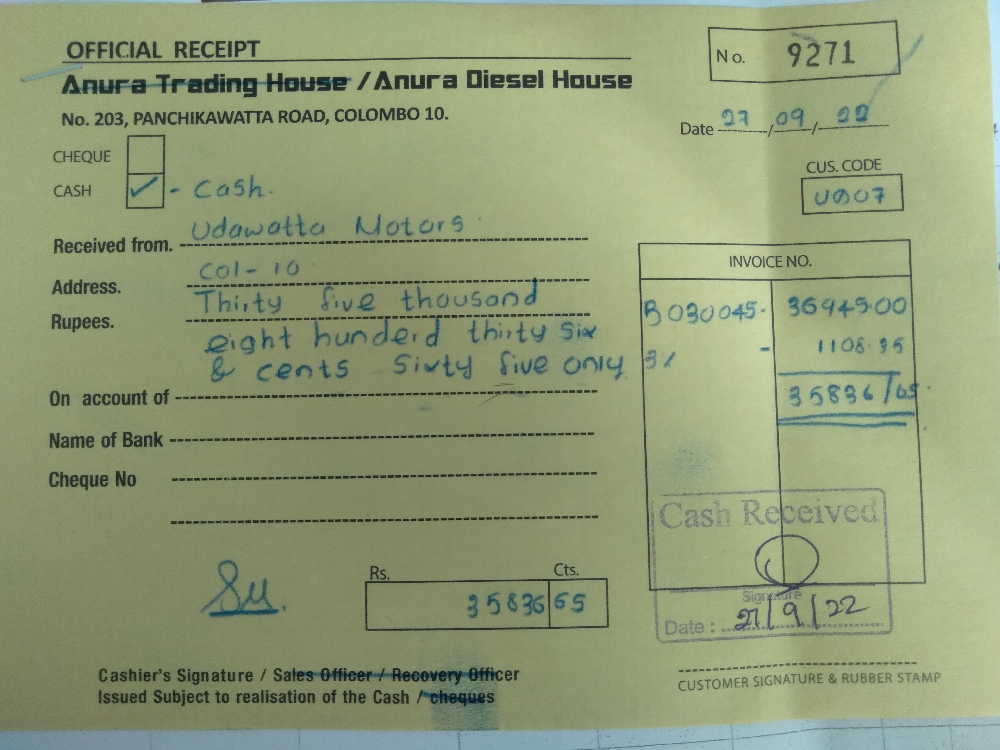 OFFICIAL RECEIPT
No. 9271
Anura Trading House / Anura Diesel House
No. 203, PANCHIKAWATTA ROAD, COLOMBO 10.
Date 27/09/22
CHEQUE
CUS. CODE
CASH ✓ - Cash.
U007
Received from. Udawatta Motors
Address. Col-10
Rupees. Thirty five thousand
eight hunderd thirty six
& cents Sixty five only
INVOICE NO.
B030045- 36945.00
3% - 1108.35
35836/65
On account of
Name of Bank
Cheque No
Cash Received
Signature
Date : 27/9/22
Rs. Cts.
35836 65
Cashier's Signature / Sales Officer / Recovery Officer
Issued Subject to realisation of the Cash / cheques
CUSTOMER SIGNATURE & RUBBER STAMP